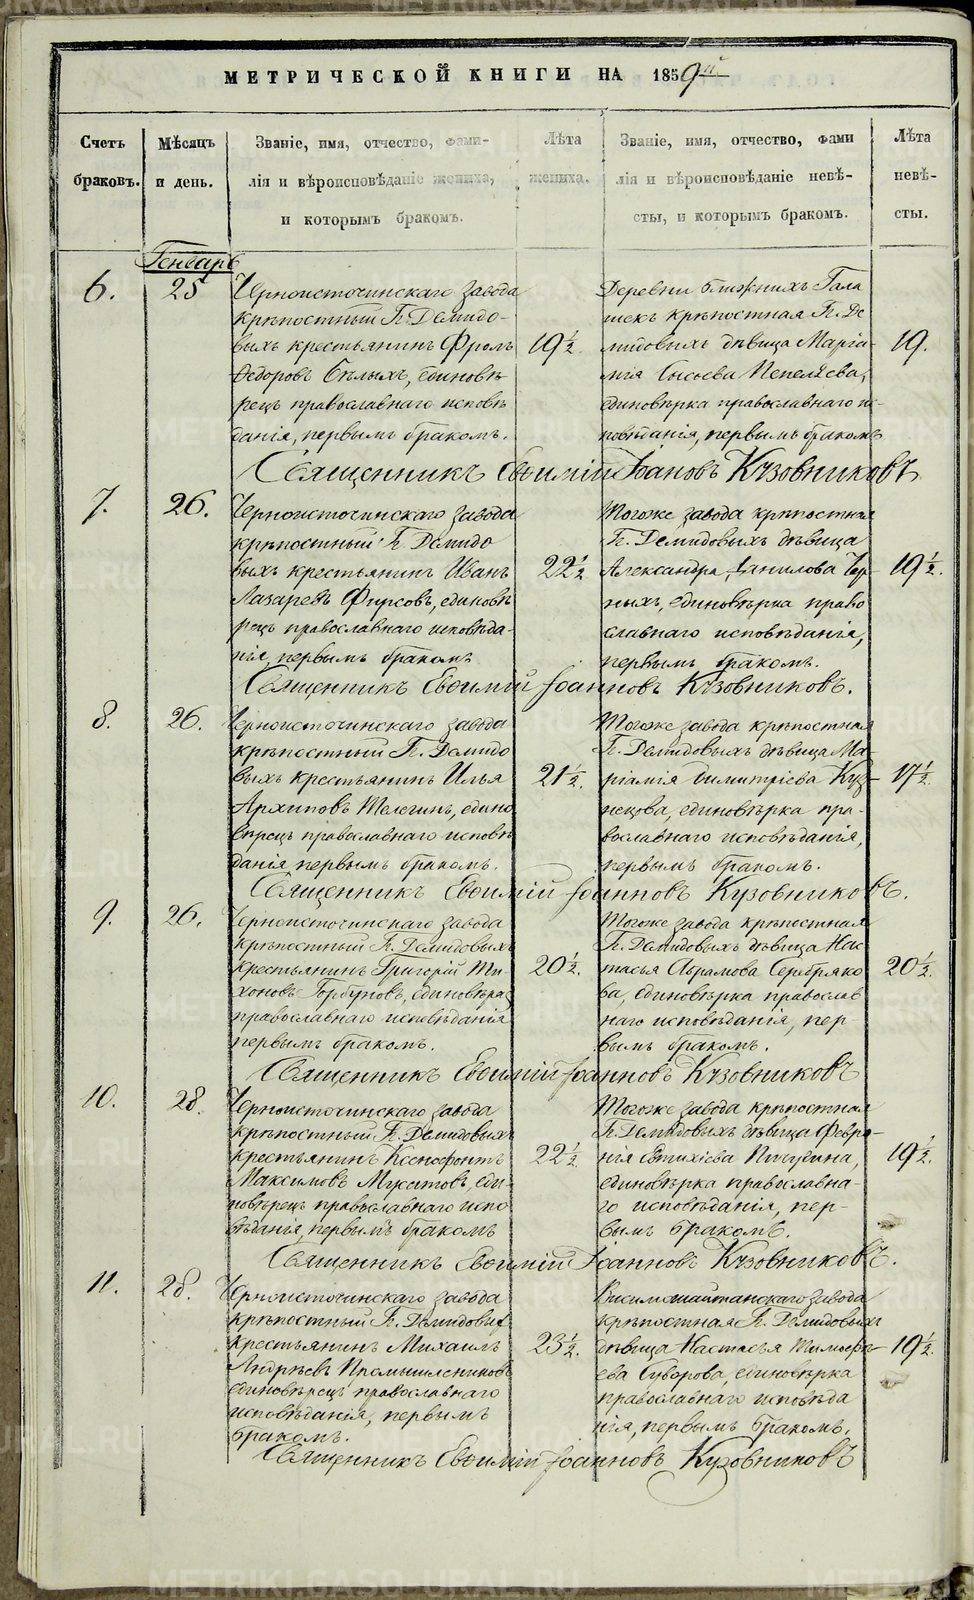 МЕТРИЧЕСКОЙ КНИГИ НА 1859й
Счетъ браковъ.
Мѣсяцъ и день.
Званіе, имя, отчество, фами-
лія и вѣроисповѣданіе жениха,
и которымъ бракомъ.
Лѣта жениха.
Званіе, имя, отчество, фами
лія и вѣроисповѣданіе невѣ-
сты, и которымъ бракомъ.
Лѣта невѣ-
сты.
Генварь
6.
25
Черноисточинскаго завода
крѣпостный Г. Демидо-
выхъ крестьянинъ Фролъ
Ѳедоровъ Бѣлыхъ, единовѣ
рецъ православнаго исповѣ
данія, первымъ бракомъ.
19 1/2
Деревни ближнихъ Гала
шекъ крѣпостная Г. Де
мидовыхъ дѣвица Маріа-
мія Сысоева Пепеляева,
единовѣрка православнаго ис-
повѣданія, первымъ бракомъ
19.
Священникъ Евѳимій Іоановъ Кузовниковъ
7.
26.
Черноисточинскаго завода
крѣпостный Г. Демидо
выхъ крестьянинъ Иванъ
Лазаревъ Фирсовъ, единовѣ
рецъ православнаго исповѣда-
нія, первымъ бракомъ
22 1/2
Тогоже завода крѣпостная
Г. Демидовыхъ дѣвица
Александра Данилова Чер-
ныхъ, единовѣрка право
славнаго исповѣданія,
первымъ бракомъ.
19 1/2.
Священникъ Евѳимій Іоанновъ Кузовниковъ.
8.
26.
Черноисточинскаго завода
крѣпостный Г. Демидо
выхъ крестьянинъ Илья
Архиповъ Телегинъ, едино
вѣрецъ православнаго исповѣ
данія первымъ бракомъ.
21 1/2.
Тогоже завода крѣпостная
Г. Демидовыхъ дѣвица Ма-
ріамія Димитріева Куз-
нецова, единовѣрка пра-
вославнаго исповѣданія,
первымъ бракомъ.
17 1/2.
Священникъ Евѳимій Іоанновъ Кузовниковъ.
9.
26.
Черноисточинскаго завода
крѣпостный Г. Демидовыхъ
крестьянинъ Григорій Ти-
хоновъ Горбуновъ, единовѣрец
православнаго исповѣданія
первымъ бракомъ.
20 1/2.
Тогоже завода крѣпостная
Г. Демидовыхъ дѣвица Нас
тасья Абрамова Серебряко
ва, единовѣрка православ
наго исповѣданія, пер-
вымъ бракомъ.
20 1/2.
Священникъ Евѳимій Іоанновъ Кузовниковъ
10.
28.
Черноисточинскаго завода
крѣпостный Г. Демидовыхъ
крестьянинъ Ксенофонтъ
Максимовъ Мусатовъ, еди-
новѣрецъ православнаго испо
вѣданія, первымъ бракомъ
22 1/2.
Тогоже завода крѣпостная
Г. Демидовыхъ дѣвица Февро-
нія Евтихіева Пичугина,
единовѣрка православна-
го исповѣданія, пер-
вымъ бракомъ.
19 1/2.
Священникъ Евѳимій Іоанновъ Кузовниковъ.
11.
28.
Черноисточинскаго завода
крѣпостный Г. Демидовых
крестьянинъ Михаилъ
Андрѣевъ Промышленниковъ
единовѣрецъ православнаго
исповѣданія, первымъ
бракомъ.
23 1/2.
Висимошайтанскаго завода
крѣпостная Г. Демидовыхъ
дѣвица Настасья Тимофѣ-
ева Суворова, единовѣрка
православнаго исповѣда
нія, первымъ бракомъ.
19 1/2.
Священникъ Евѳимій Іоанновъ Кузовниковъ
METRIKI.GASO-URAL.RU